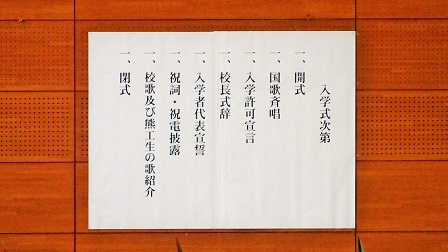 入学式次第
一、開式
一、国歌斉唱
一、入学許可宣言
一、校長式辞
一、入学者代表宣誓
一、祝詞・祝電披露
一、校歌及び熊工生の歌紹介
一、閉式